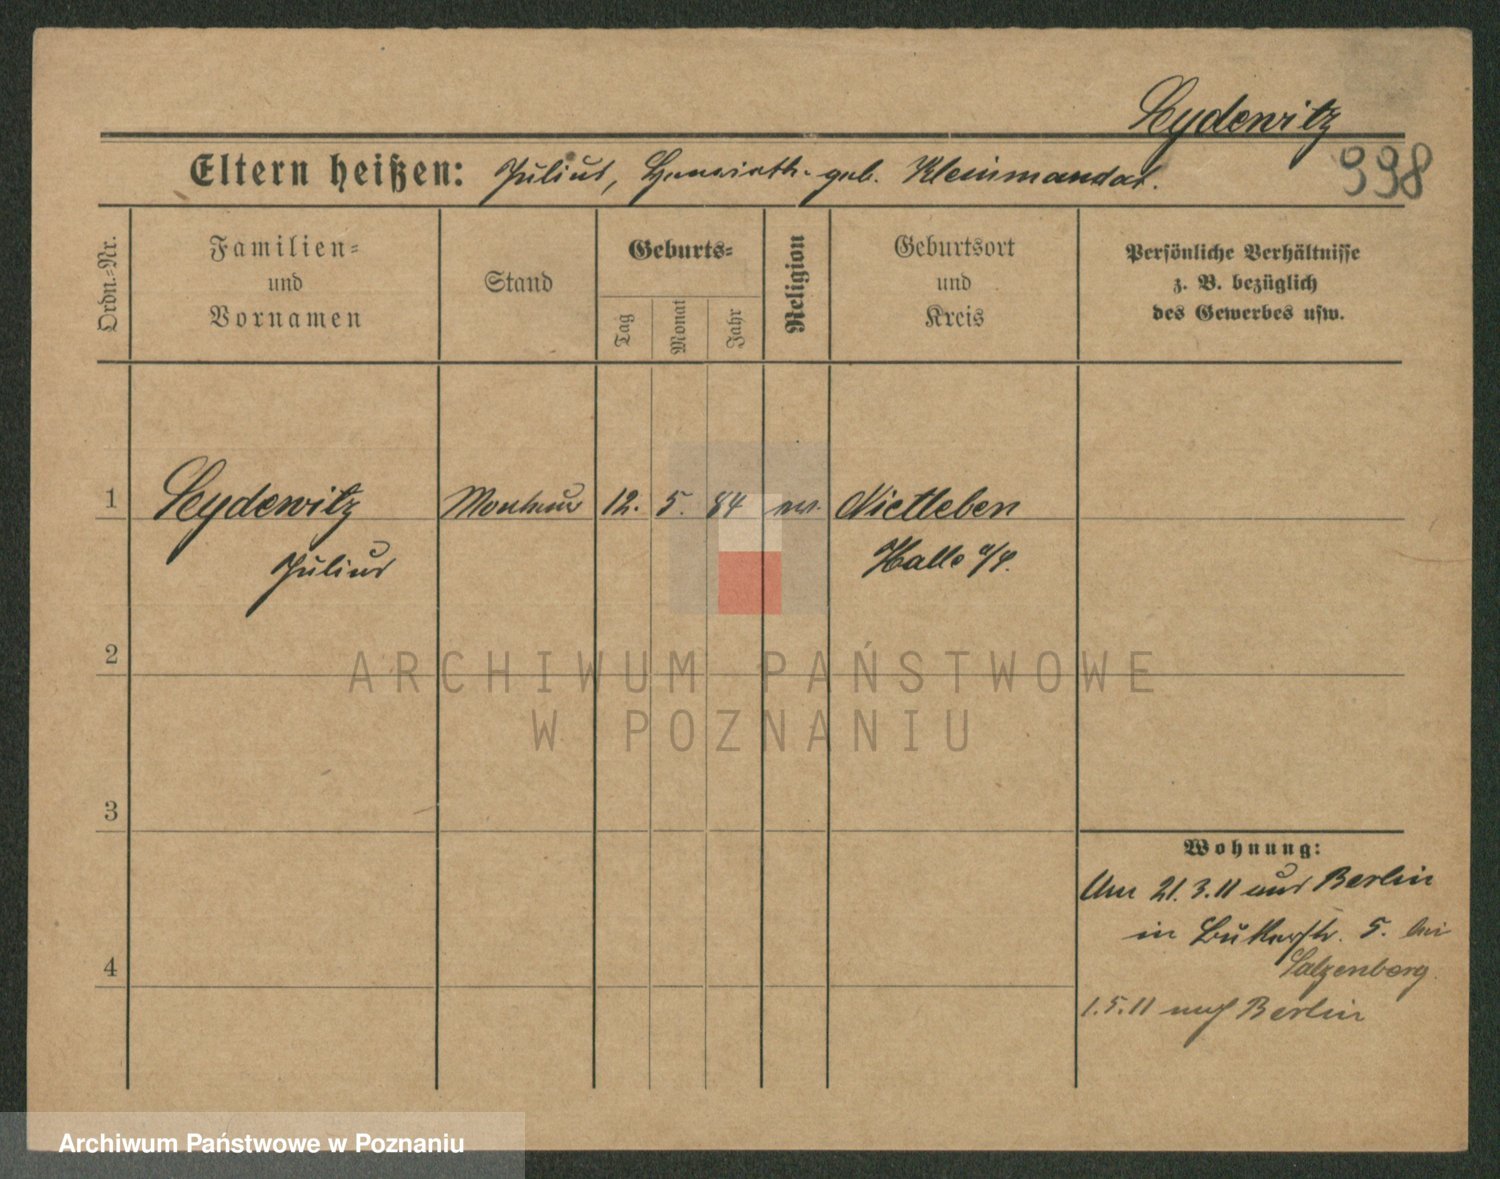 Lydewitz
Eltern heißen: Julius, Henriette geb. Kleinmandat.
998
Ordn.-Nr.
Familien-
und
Vornamen
Stand
Geburts-
Tag
Monat
Jahr
Religion
Geburtsort
und
Kreis
Persönliche Verhältnisse
z. B. bezüglich
des Gewerbes usw.
1 Lydewitz Monteur 12. 5. 84 ev. Nietleben
Julius Halle a/S.
2
ARCHIWUM PAŃSTWOWE
W POZNANIU
3
Wohnung:
Am 21.3.11 aus Berlin
in 5. bei
Salzenberg
4
1.5.11 nach Berlin
Archiwum Państwowe w Poznaniu